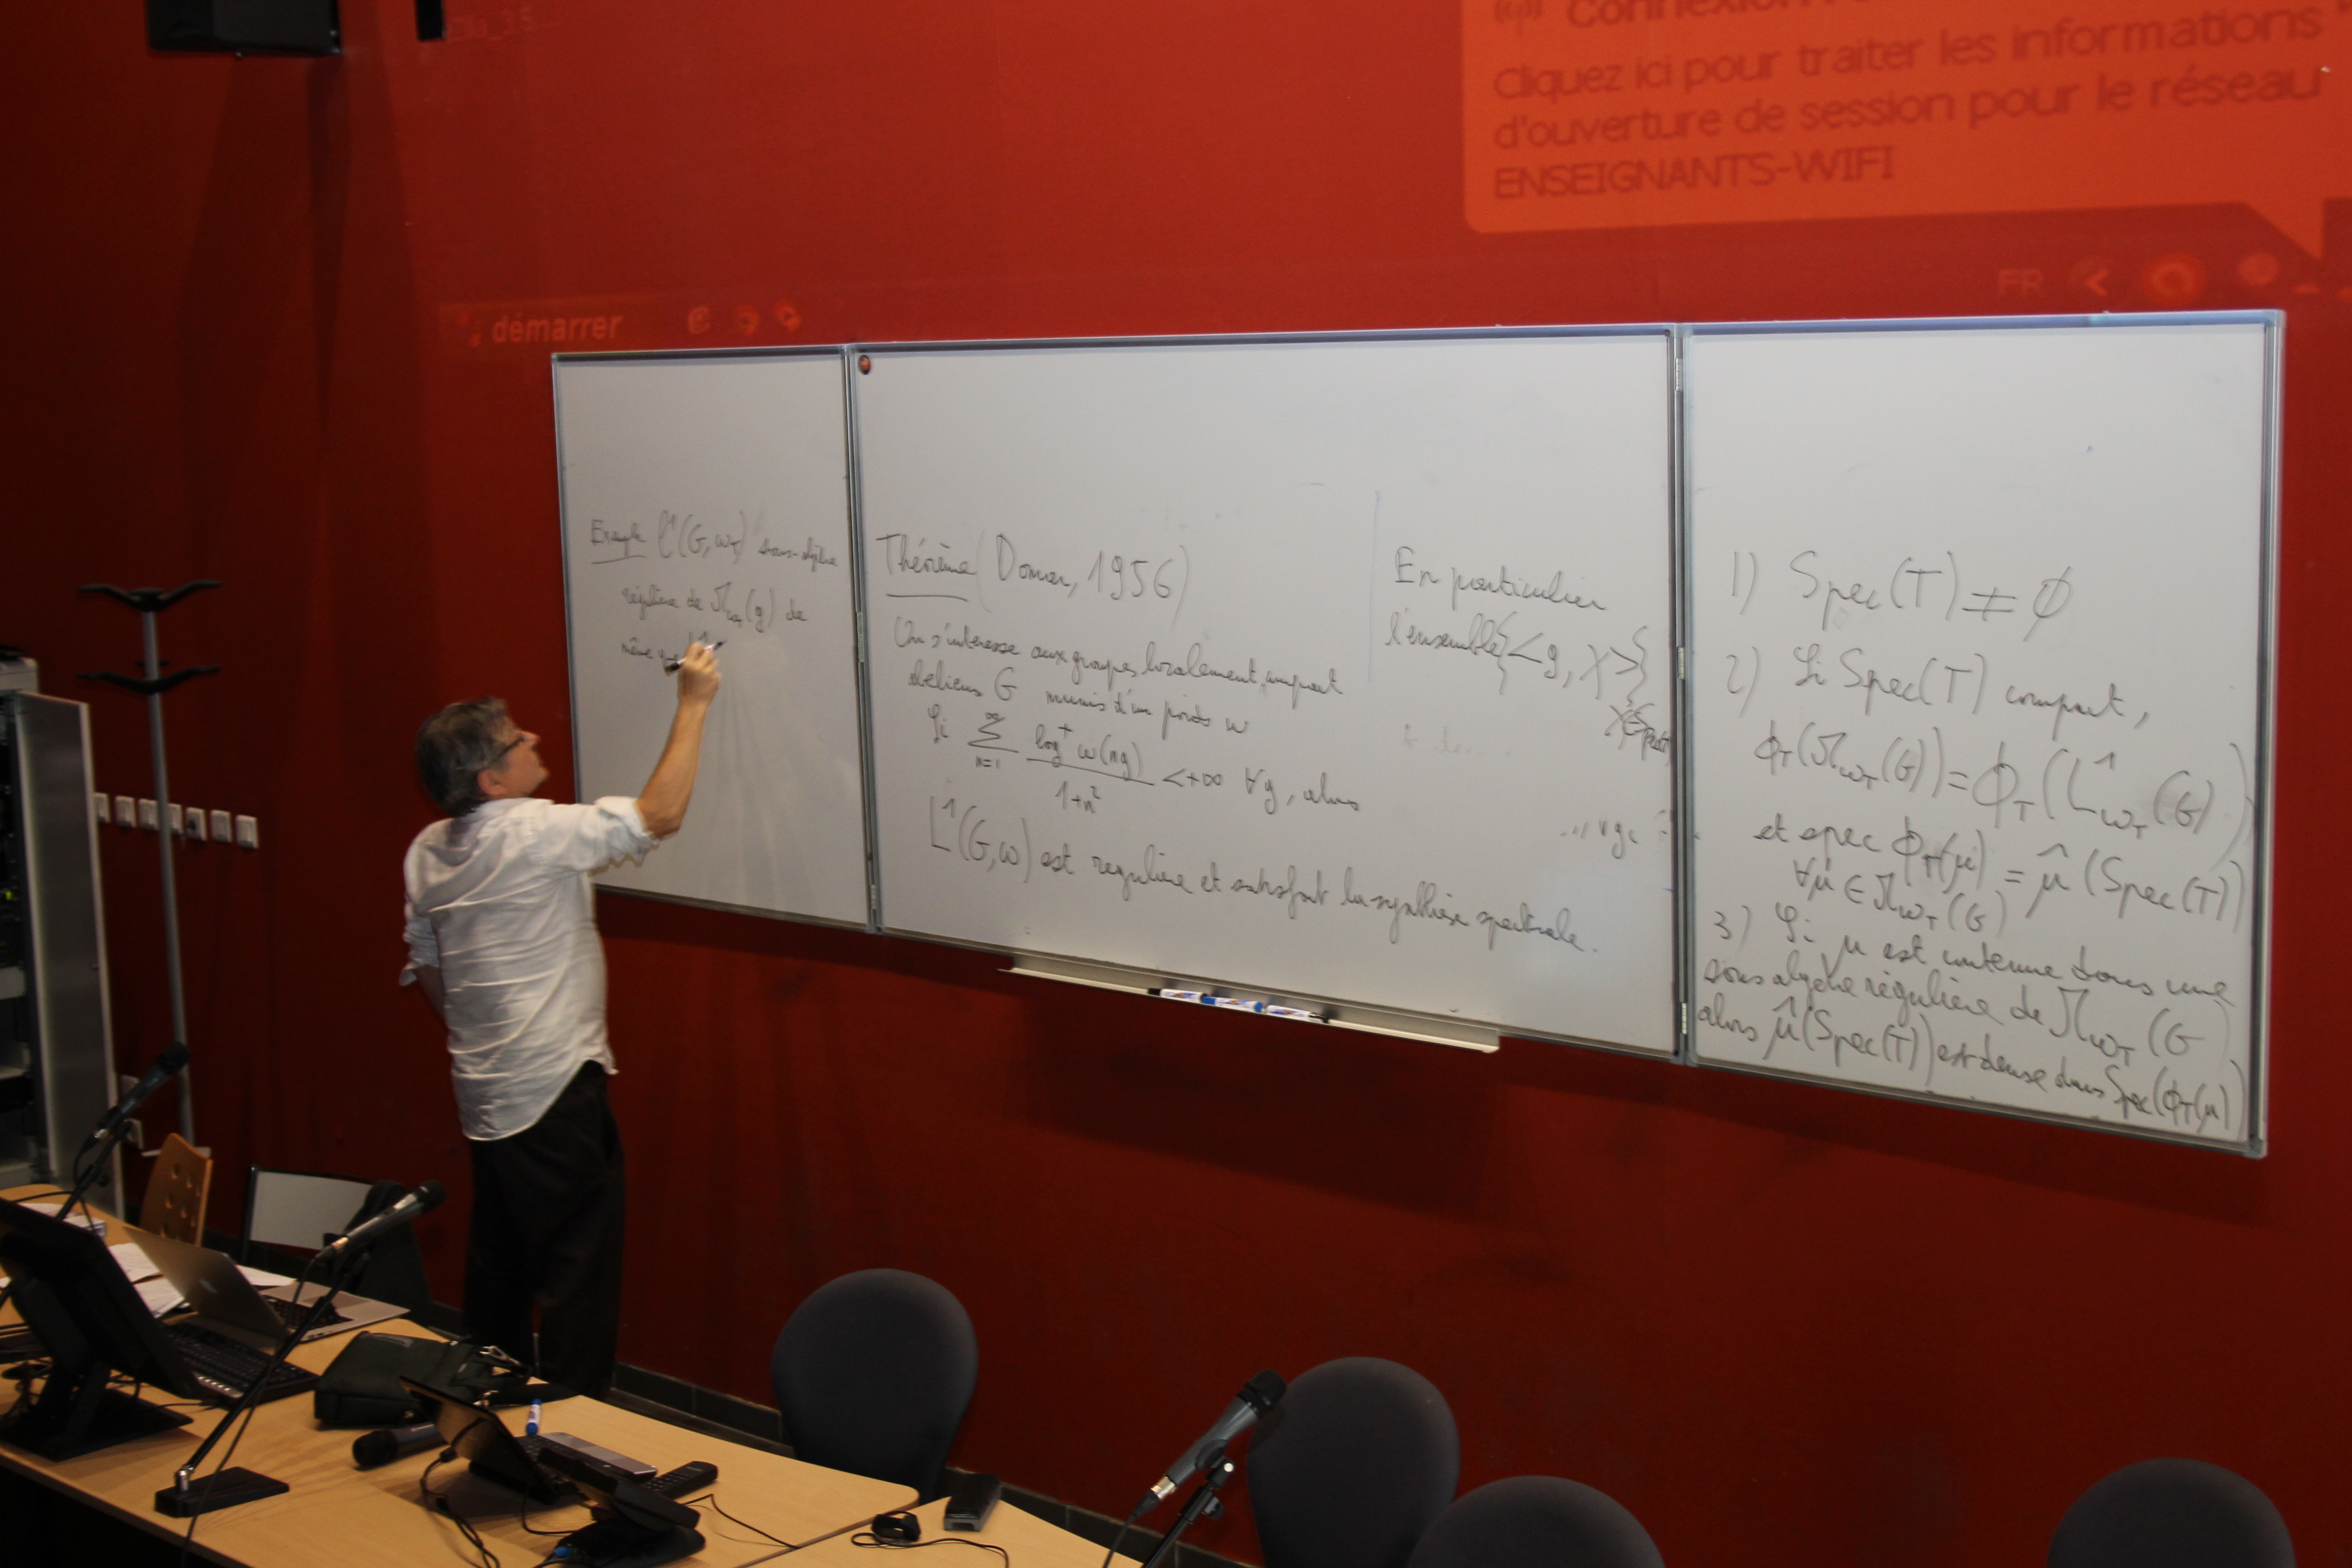 Connexion
Cliquez ici pour traiter les informations
d'ouverture de session pour le réseau
ENSEIGNANTS-WIFI
FR
démarrer
Exemple l¹(G, ω_T) sous-algèbre
régulière de M_{ω_T}(g) de
même que
Théorème (Domar, 1956)
On s'intéresse aux groupes localement compact
abeliens G munis d'un poids ω
Si ∑_{n=1}^{∞} log⁺ ω(ng) / 1+n² < +∞ ∀g, alors
L¹(G,ω) est régulière et satisfait la synthèse spectrale.
En particulier
l'ensemble {<g, χ>}
χ∈Spec(T)
1) Spec(T) ≠ ∅
2) Si Spec(T) compact,
ϕ_T(M_{ω_T}(G)) = ϕ_T(L¹_{ω_T}(G))
et spec ϕ_T(μ) = μ̂(Spec(T))
∀μ ∈ M_{ω_T}(G)
3) Si μ est contenue dans une
sous algèbre régulière de M_{ω_T}(G)
alors μ̂(Spec(T)) est dense dans Spec(ϕ_T(μ))